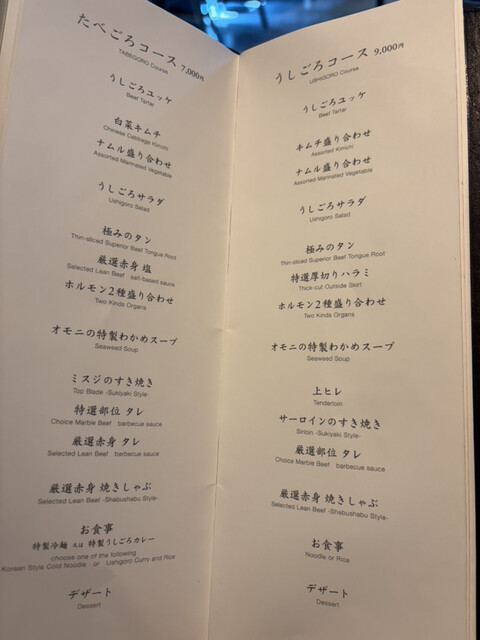 たべごろコース 7,000円
TABEGORO Course
うしごろユッケ
Beef Tartar
白菜キムチ
Chinese Cabbage Kimchi
ナムル盛り合わせ
Assorted Marinated Vegetable
うしごろサラダ
Ushigoro Salad
極みのタン
Thin-sliced Superior Beef Tongue Root
厳選赤身 塩
Selected Lean Beef salt-based sauce
ホルモン2種盛り合わせ
Two Kinds Organs
オモニの特製わかめスープ
Seaweed Soup
ミスジのすき焼き
Top Blade -Sukiyaki Style-
特選部位 タレ
Choice Marble Beef barbecue sauce
厳選赤身 タレ
Selected Lean Beef barbecue sauce
厳選赤身 焼きしゃぶ
Selected Lean Beef -Shabushabu Style-
お食事
特製冷麺 又は 特製うしごろカレー
choose one of the following
Korean Style Cold Noodle or Ushigoro Curry and Rice
デザート
Dessert
うしごろコース 9,000円
USHIGORO Course
うしごろユッケ
Beef Tartar
キムチ盛り合わせ
Assorted Kimchi
ナムル盛り合わせ
Assorted Marinated Vegetable
うしごろサラダ
Ushigoro Salad
極みのタン
Thin-sliced Superior Beef Tongue Root
特選厚切りハラミ
Thick-cut Outside Skirt
ホルモン2種盛り合わせ
Two Kinds Organs
オモニの特製わかめスープ
Seaweed Soup
上ヒレ
Tenderloin
サーロインのすき焼き
Sirloin -Sukiyaki Style-
厳選部位 タレ
Choice Marble Beef barbecue sauce
厳選赤身 焼きしゃぶ
Selected Lean Beef -Shabushabu Style-
お食事
Noodle or Rice
デザート
Dessert